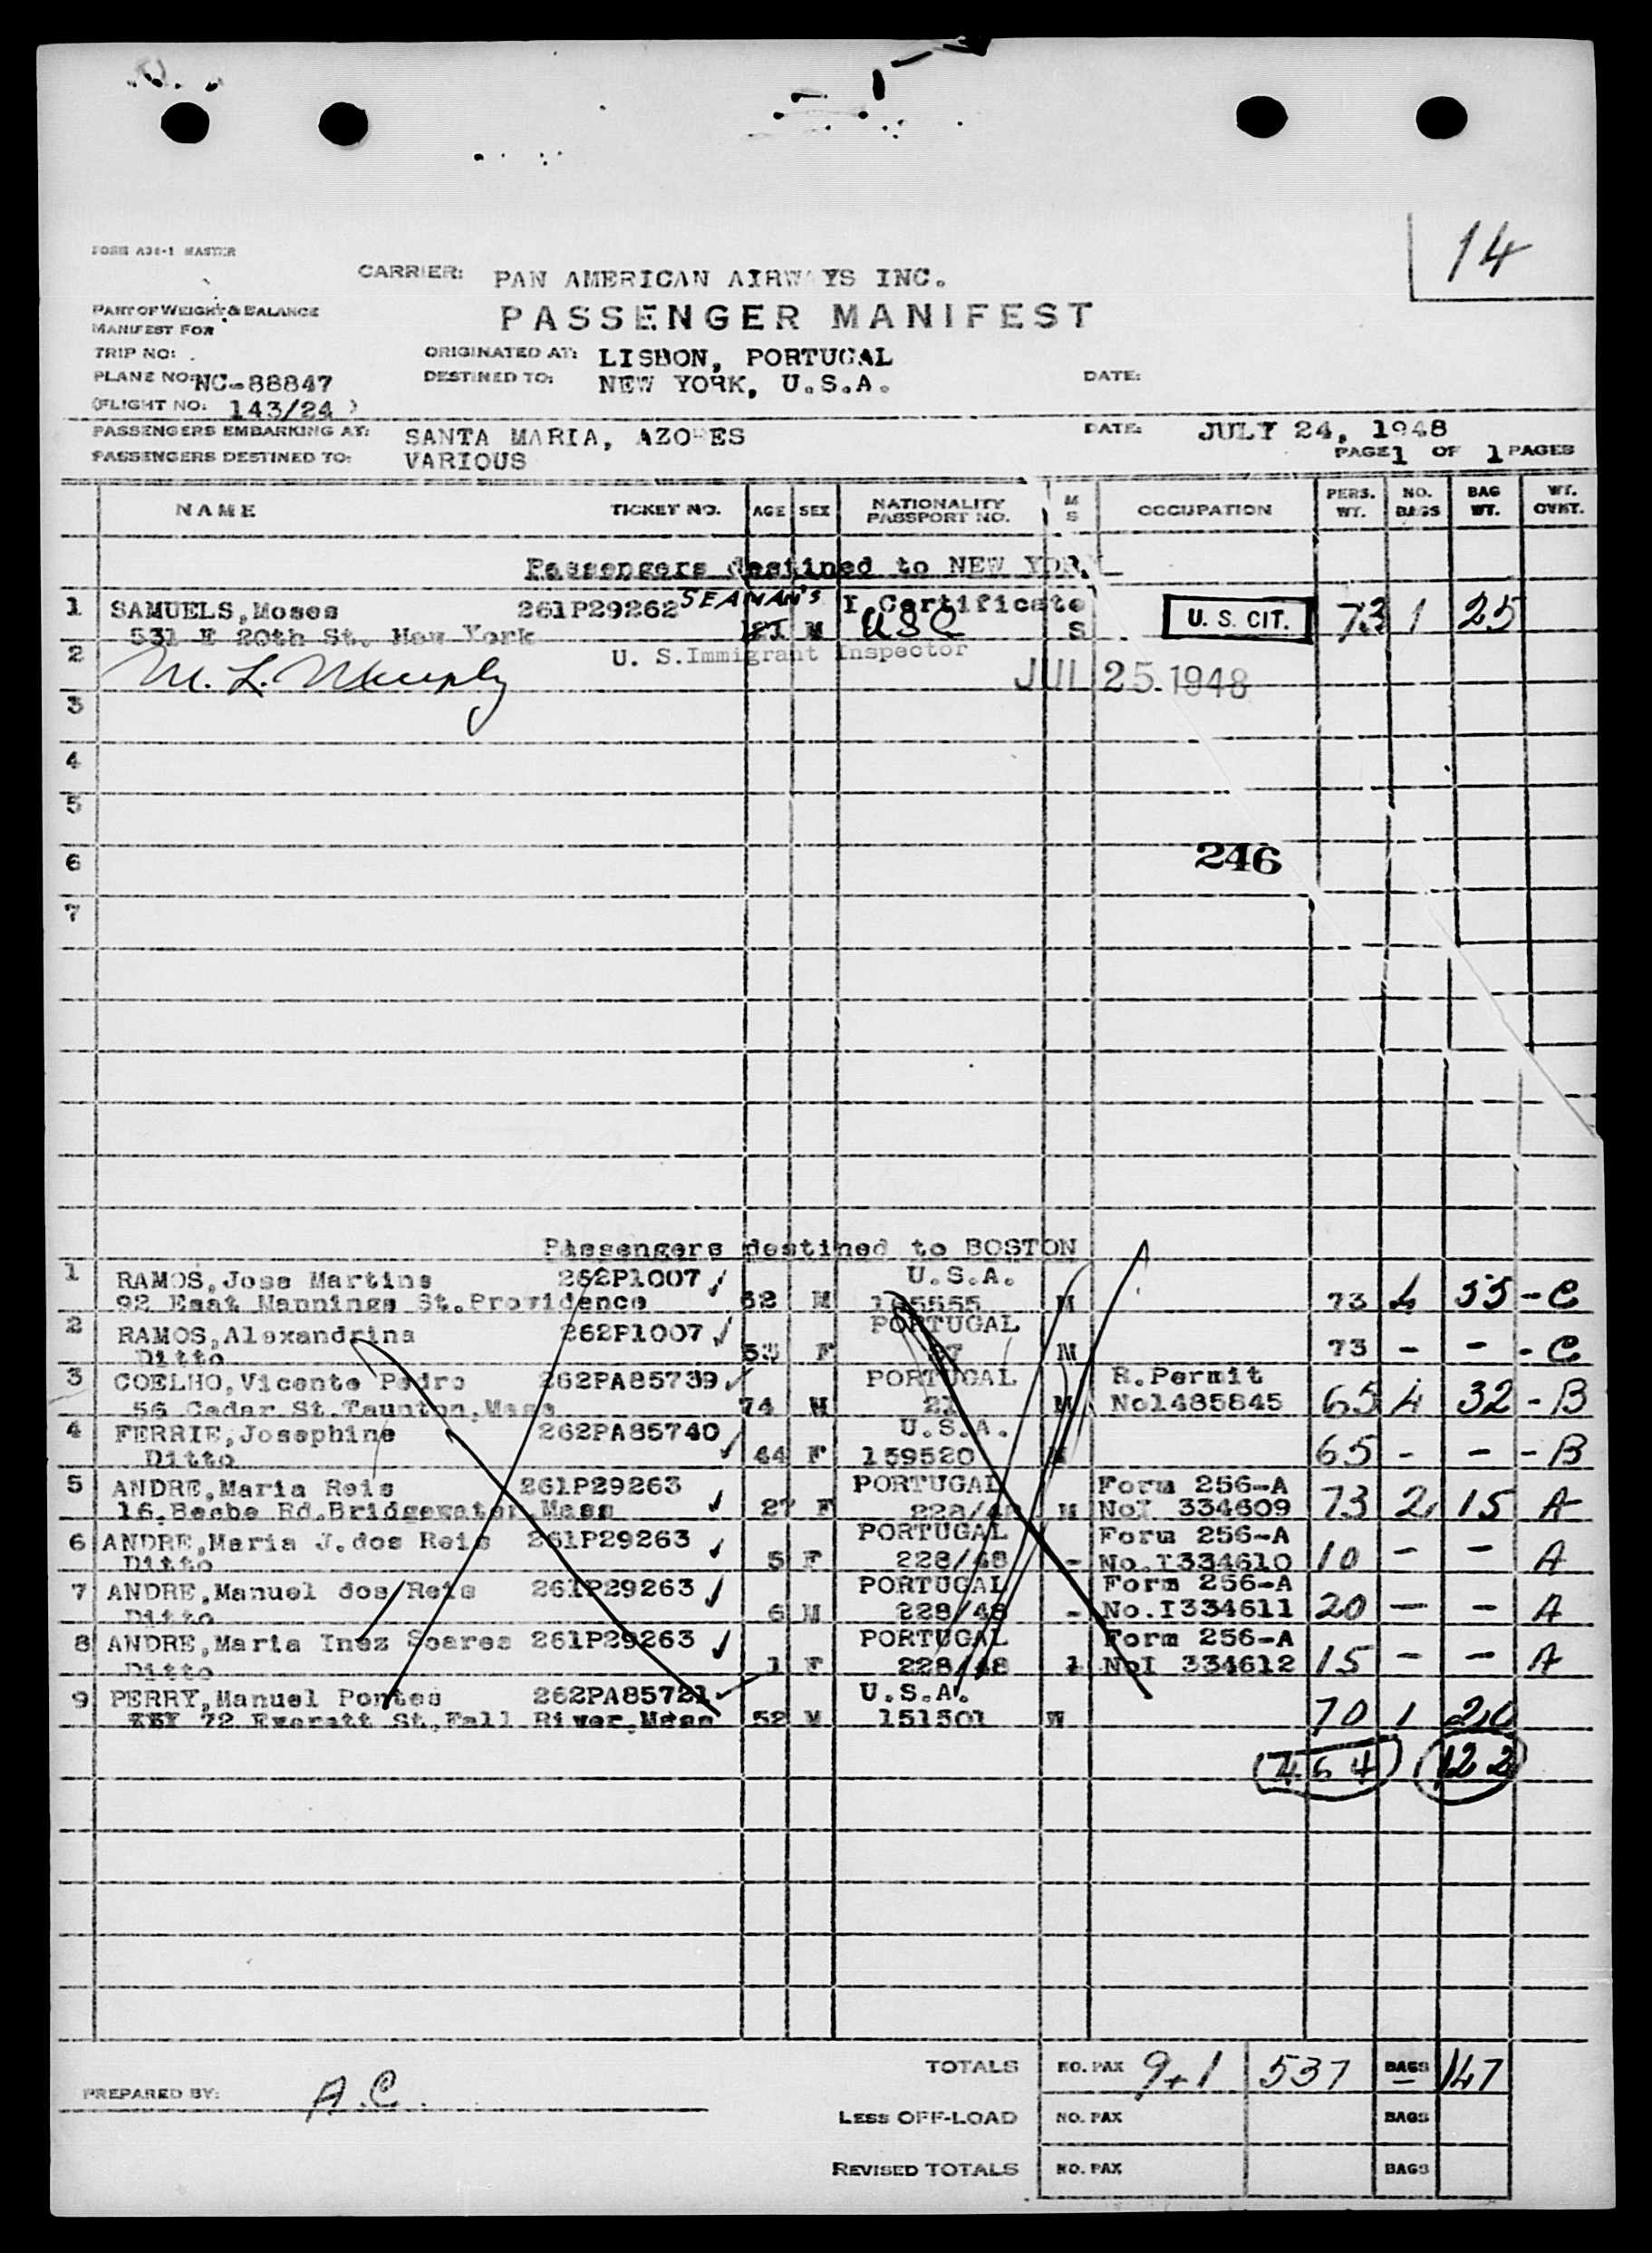 14
FORM A36-1 MASTER
CARRIER: PAN AMERICAN AIRWAYS INC.
PART OF WEIGHT & BALANCE
MANIFEST FOR
PASSENGER MANIFEST
TRIP NO: ORIGINATED AT: LISBON, PORTUGAL
PLANE NO: NC-88847 DESTINED TO: NEW YORK, U.S.A. DATE:
(FLIGHT NO: 143/24 )
PASSENGERS EMBARKING AT: SANTA MARIA, AZORES DATE: JULY 24, 1948
PASSENGERS DESTINED TO: VARIOUS PAGE 1 OF 1 PAGES
NAME TICKET NO. AGE SEX NATIONALITY PASSPORT NO. M S OCCUPATION PERS. WT. NO. BAGS BAG WT. WT. OVHT.
Passengers destined to NEW YORK
1 SAMUELS, Moses 261P29262 SEAMAN'S I Certificate
531 E 20th St. New York 21 M USC S U. S. CIT. 73 1 25
2 M. L. Murphy U. S. Immigrant Inspector JUL 25 1948
3
4
5
6 246
7
Passengers destined to BOSTON
1 RAMOS, Jose Martins 262P1007 U.S.A.
92 East Mannings St. Providence 62 M M 73 4 55 - C
2 RAMOS, Alexandrina 262P1007 PORTUGAL
Ditto 53 F M 73 - - - C
3 COELHO, Vicente Pedro 262PA85739 PORTUGAL R. Permit
56 Cedar St. Taunton, Mass 74 M 21 M No1485845 65 4 32 - B
4 FERRIE, Josephine 262PA85740 U.S.A.
Ditto 44 F 159520 65 - - - B
5 ANDRE, Maria Reis 261P29263 PORTUGAL Form 256-A
16, Beebe Rd. Bridgewater Mass 27 F 228/48 M NoI 334609 73 2 15 A
6 ANDRE, Maria J. dos Reis 261P29263 PORTUGAL Form 256-A
Ditto 5 F 228/48 - No. I334610 10 - - A
7 ANDRE, Manuel dos Reis 261P29263 PORTUGAL Form 256-A
Ditto 6 M 228/48 - No. I334611 20 - - A
8 ANDRE, Maria Inez Soares 261P29263 PORTUGAL Form 256-A
Ditto 1 F 228/48 NoI 334612 15 - - A
9 PERRY, Manuel Pontes 262PA85721 U.S.A.
72 Everatt St, Fall River, Mass 52 M 151501 W 70 1 20
464 122
TOTALS NO. PAX 9+1 537 BAGS 147
PREPARED BY: A.C.
LESS OFF-LOAD NO. PAX BAGS
REVISED TOTALS NO. PAX BAGS